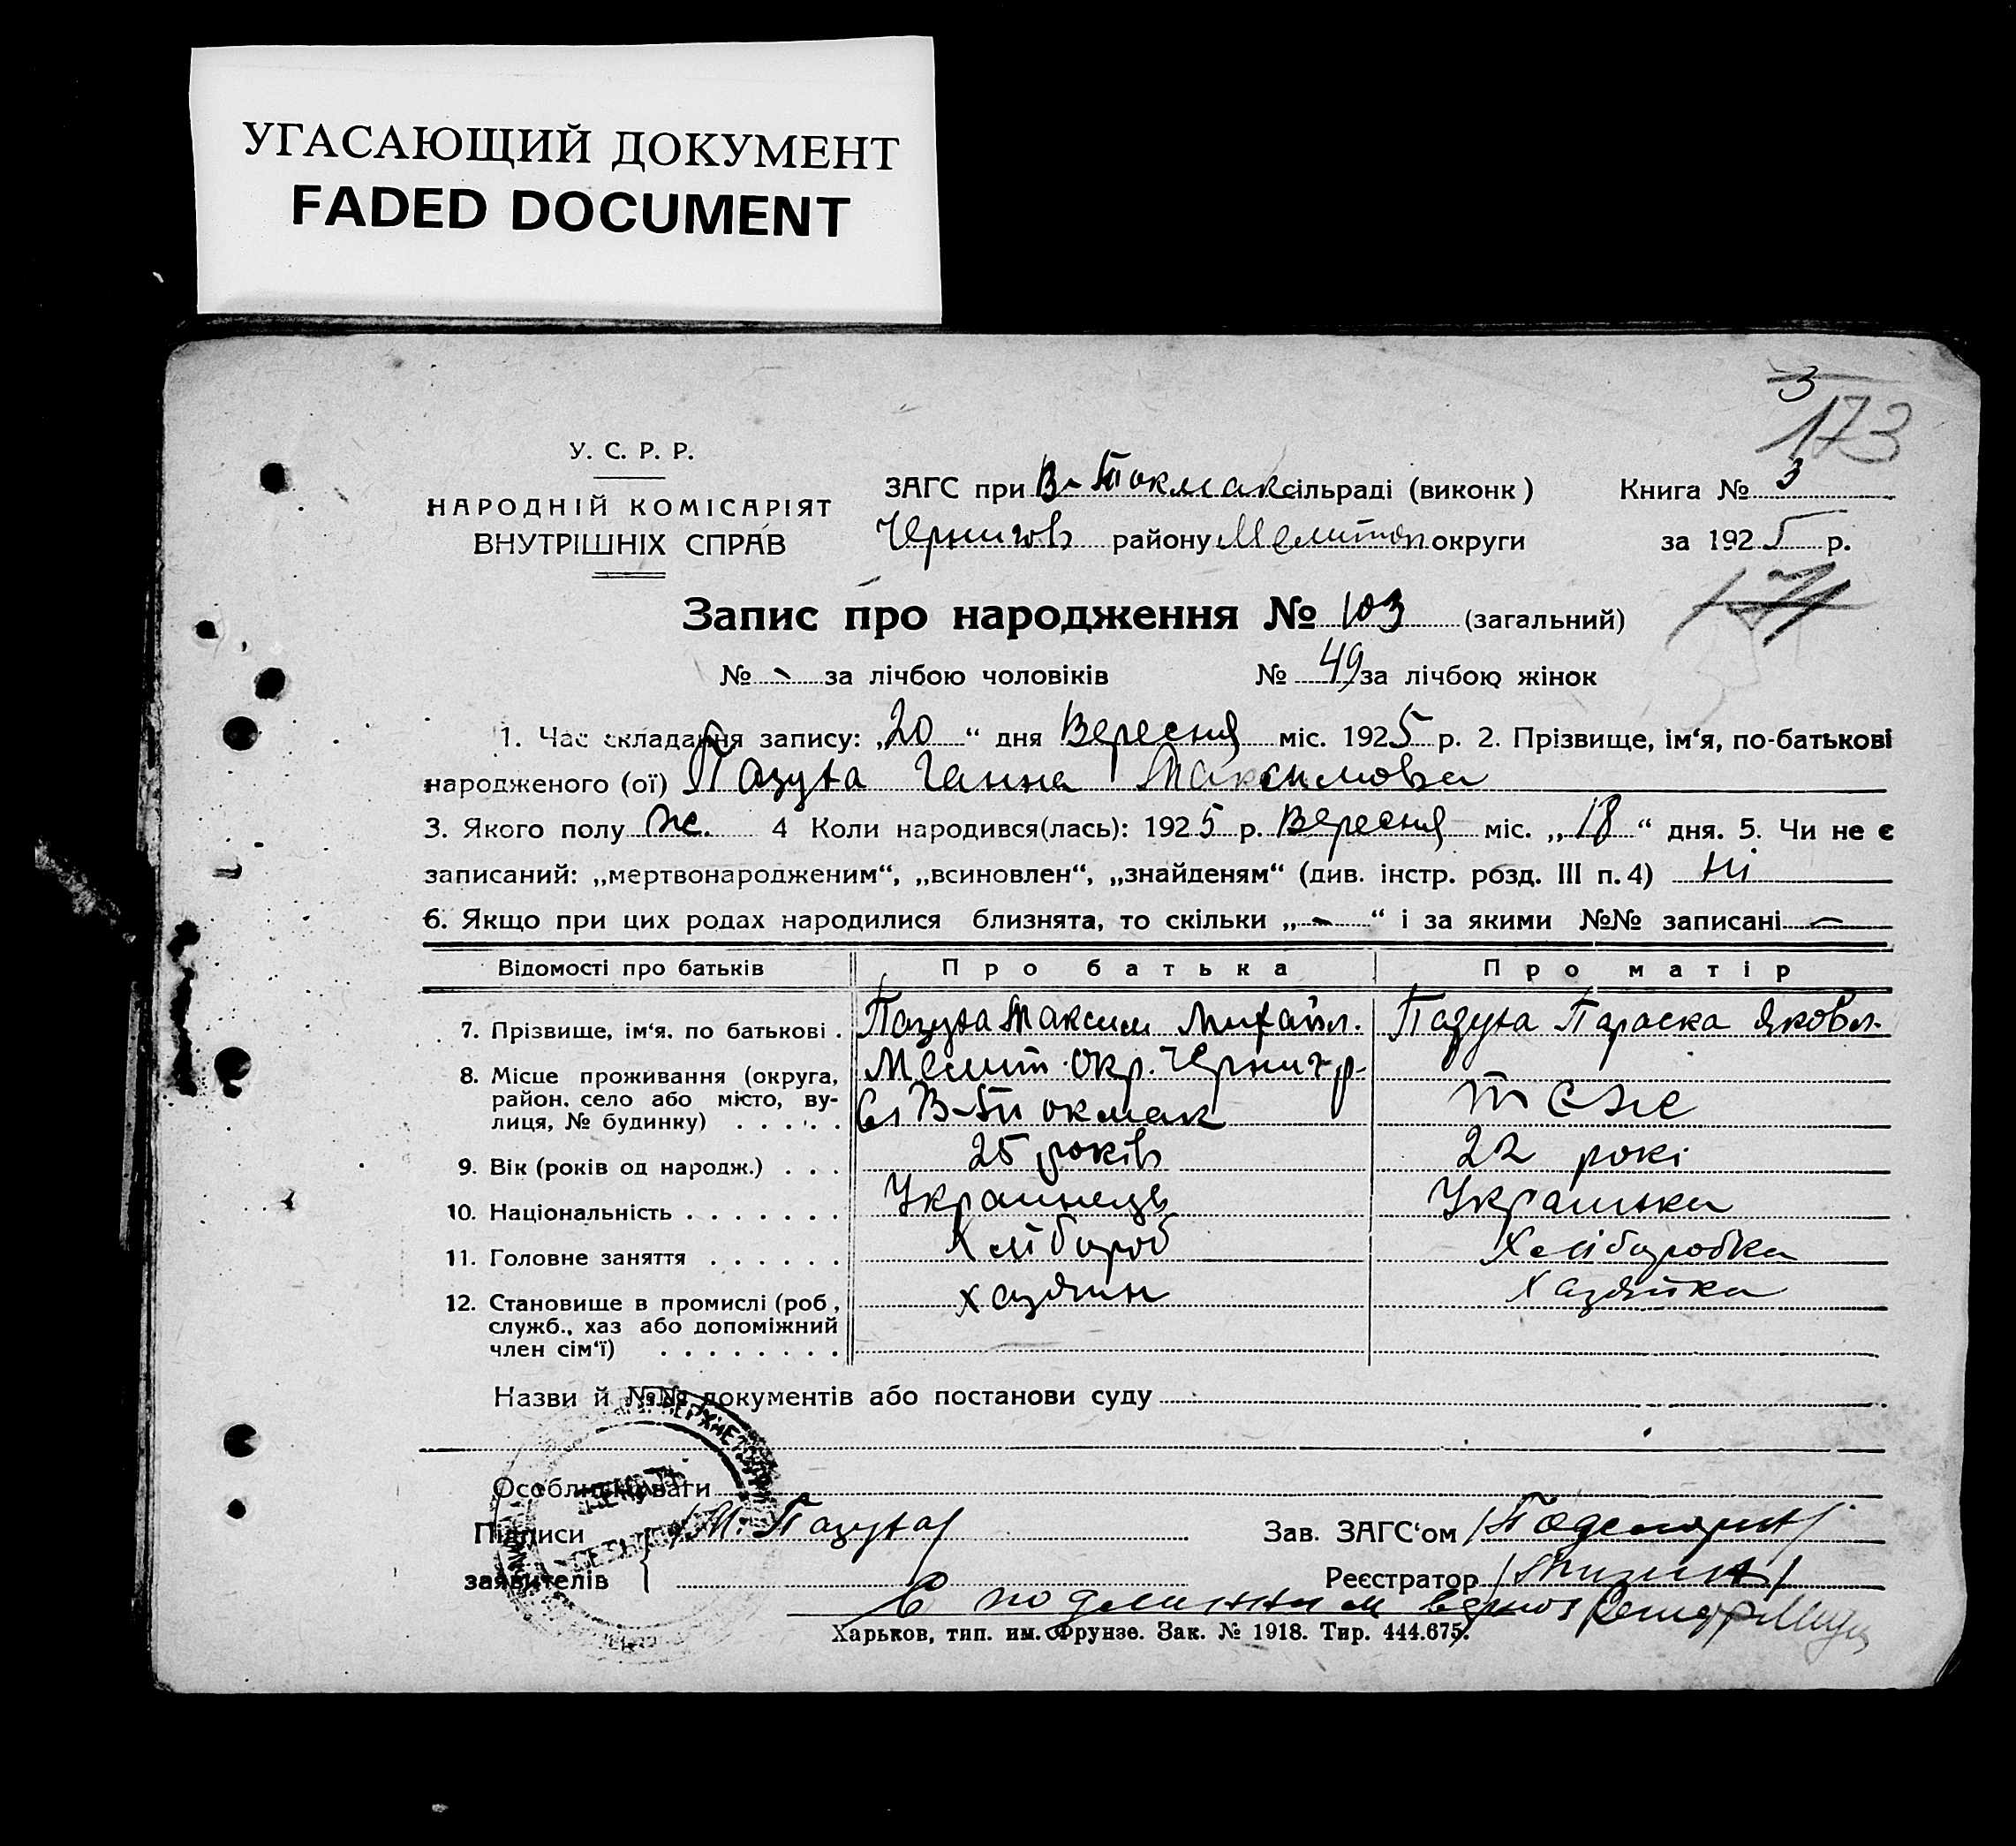 УГАСАЮЩИЙ ДОКУМЕНТ
FADED DOCUMENT
3
173
У. С. Р. Р.
НАРОДНІЙ КОМІСАРІЯТ
ВНУТРІШНІХ СПРАВ
ЗАГС при В-Токмак сільраді (виконк)
Книга № 3
Чернигов району Мелитоп округи
за 1925 р.
Запис про народження № 103 (загальний)
171
№ - за лічбою чоловіків № 49 за лічбою жінок
1. Час складання запису: „20“ дня Вересня міс. 1925 р. 2. Прізвище, ім‘я, по-батькові
народженого (ої) Пазуха Ганна Максимовна
3. Якого полу же. 4 Коли народився(лась): 1925 р. Вересня міс. „18“ дня. 5. Чи не є
записаний: „мертвонародженим“, „всиновлен“, „знайденям“ (див. інстр. розд. III п. 4) Ні
6. Якщо при цих родах народилися близнята, то скільки „-“ і за якими №№ записані -
Відомості про батьків Про батька Про матір
7. Прізвище, ім‘я, по батькові . Пазуха Максим Михайл. Пазуха Параска Яковл.
8. Місце проживання (округа, Мелит. окр. Черниг р-
район, село або місто, ву- сл В-Токмак теже
лиця, № будинку) . . . . .
9. Вік (років од народж.) . . . 25 років 22 рокі
10. Національність . . . . . . . Украинець Украинка
11. Головне заняття . . . . . . Хлібороб Хліборобка
12. Становище в промислі (роб, хазяин хазяйка
служб., хаз або допоміжний
член сім‘ї) . . . . . . . .
Назви й №№ документів або постанови суду
Особливі уваги
Підписи /М. Пазуха/ Зав. ЗАГС‘ом
заявителів Реєстратор
С подлинным верно
Харьков, тип. им. Фрунзе. Зак. № 1918. Тир. 444.675.